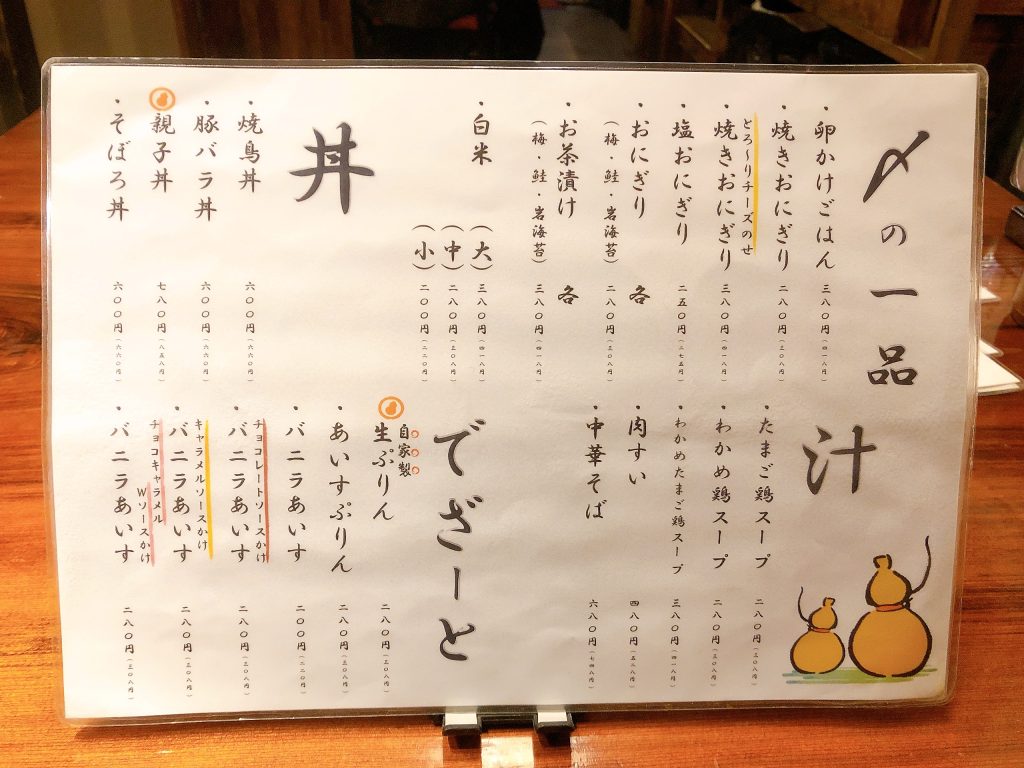 〆の一品
・卵かけごはん 三八〇円(四一八円)
・焼きおにぎり 二八〇円(三〇八円)
とろ~りチーズのせ
・焼きおにぎり 三八〇円(四一八円)
・塩おにぎり 二五〇円(二七五円)
・おにぎり 各 二八〇円(三〇八円)
(梅・鮭・岩海苔)
・お茶漬け 各 三八〇円(四一八円)
(梅・鮭・岩海苔)
・白米 (大) 三八〇円(四一八円)
(中) 二八〇円(三〇八円)
(小) 二〇〇円(二二〇円)
丼
・焼鳥丼 六〇〇円(六六〇円)
・豚バラ丼 六〇〇円(六六〇円)
親子丼 七八〇円(八五八円)
・そぼろ丼 六〇〇円(六六〇円)
汁
・たまご鶏スープ 二八〇円(三〇八円)
・わかめ鶏スープ 二八〇円(三〇八円)
・わかめたまご鶏スープ 三八〇円(四一八円)
・肉すい 四八〇円(五二八円)
・中華そば 六八〇円(七四八円)
でざーと
自家製
生ぷりん 二八〇円(三〇八円)
・あいすぷりん 二八〇円(三〇八円)
・バニラあいす 二〇〇円(二二〇円)
チョコレートソースかけ
・バニラあいす 二八〇円(三〇八円)
キャラメルソースかけ
・バニラあいす 二八〇円(三〇八円)
チョコキャラメル
Wソースかけ
・バニラあいす 二八〇円(三〇八円)